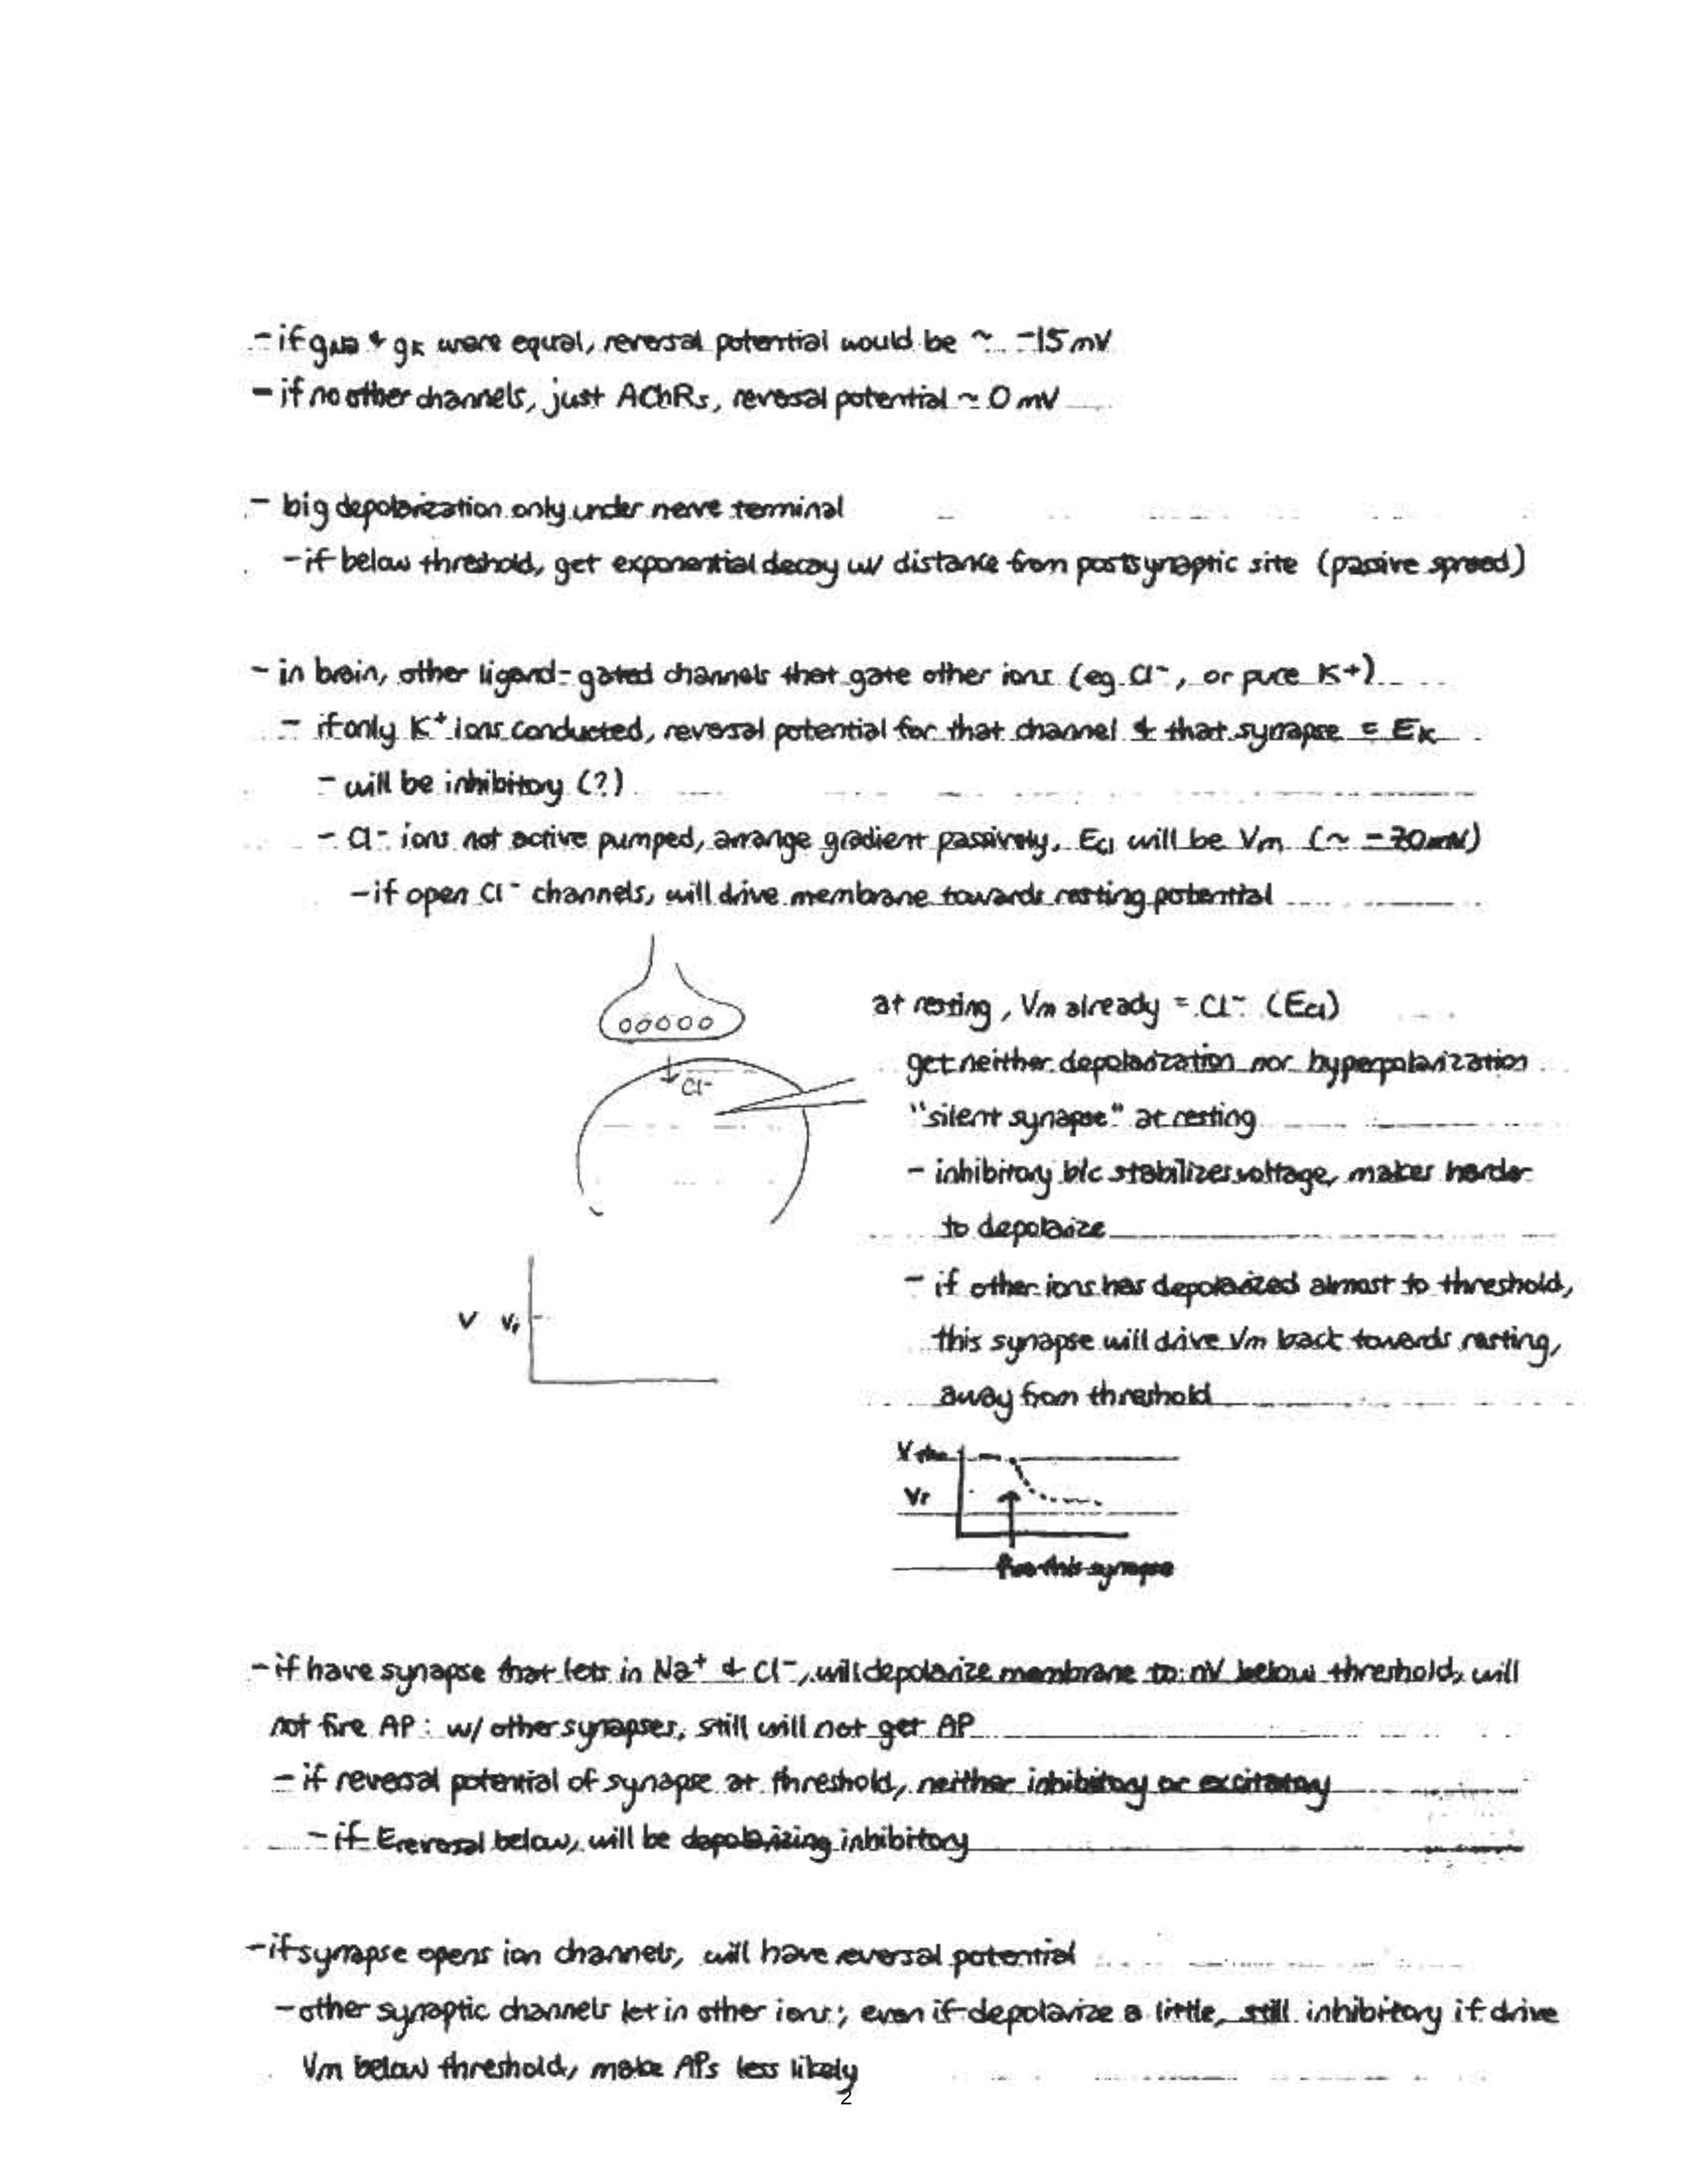 - if gNa & gK were equal, reversal potential would be ~ -15 mV
- if no other channels, just AChRs, reversal potential ~ 0 mV
- big depolarization only under nerve terminal
- if below threshold, get exponential decay w/ distance from postsynaptic site (passive spread)
- in brain, other ligand-gated channels that gate other ions (eg. Cl-, or pure K+)
- if only K+ ions conducted, reversal potential for that channel & that synapse = EK
- will be inhibitory (?)
- Cl- ions not active pumped, arrange gradient passively, ECl will be Vm (~ -70mV)
- if open Cl- channels, will drive membrane towards resting potential
Cl-
at resting, Vm already = Cl- (ECl)
get neither depolarization nor hyperpolarization
"silent synapse" at resting
- inhibitory b/c stabilizes voltage, makes harder
to depolarize
- if other ions has depolarized almost to threshold,
this synapse will drive Vm back towards resting,
away from threshold
V Vr
V thr
Vr
fire this synapse
- if have synapse that lets in Na+ & Cl-, will depolarize membrane to mV below threshold, will
not fire AP: w/ other synapses, still will not get AP
- if reversal potential of synapse at threshold, neither inhibitory or excitatory
- if Ereversal below, will be depolarizing inhibitory
- if synapse opens ion channels, will have reversal potential
- other synaptic channels let in other ions; even if depolarize a little, still inhibitory if drive
Vm below threshold, make APs less likely
2